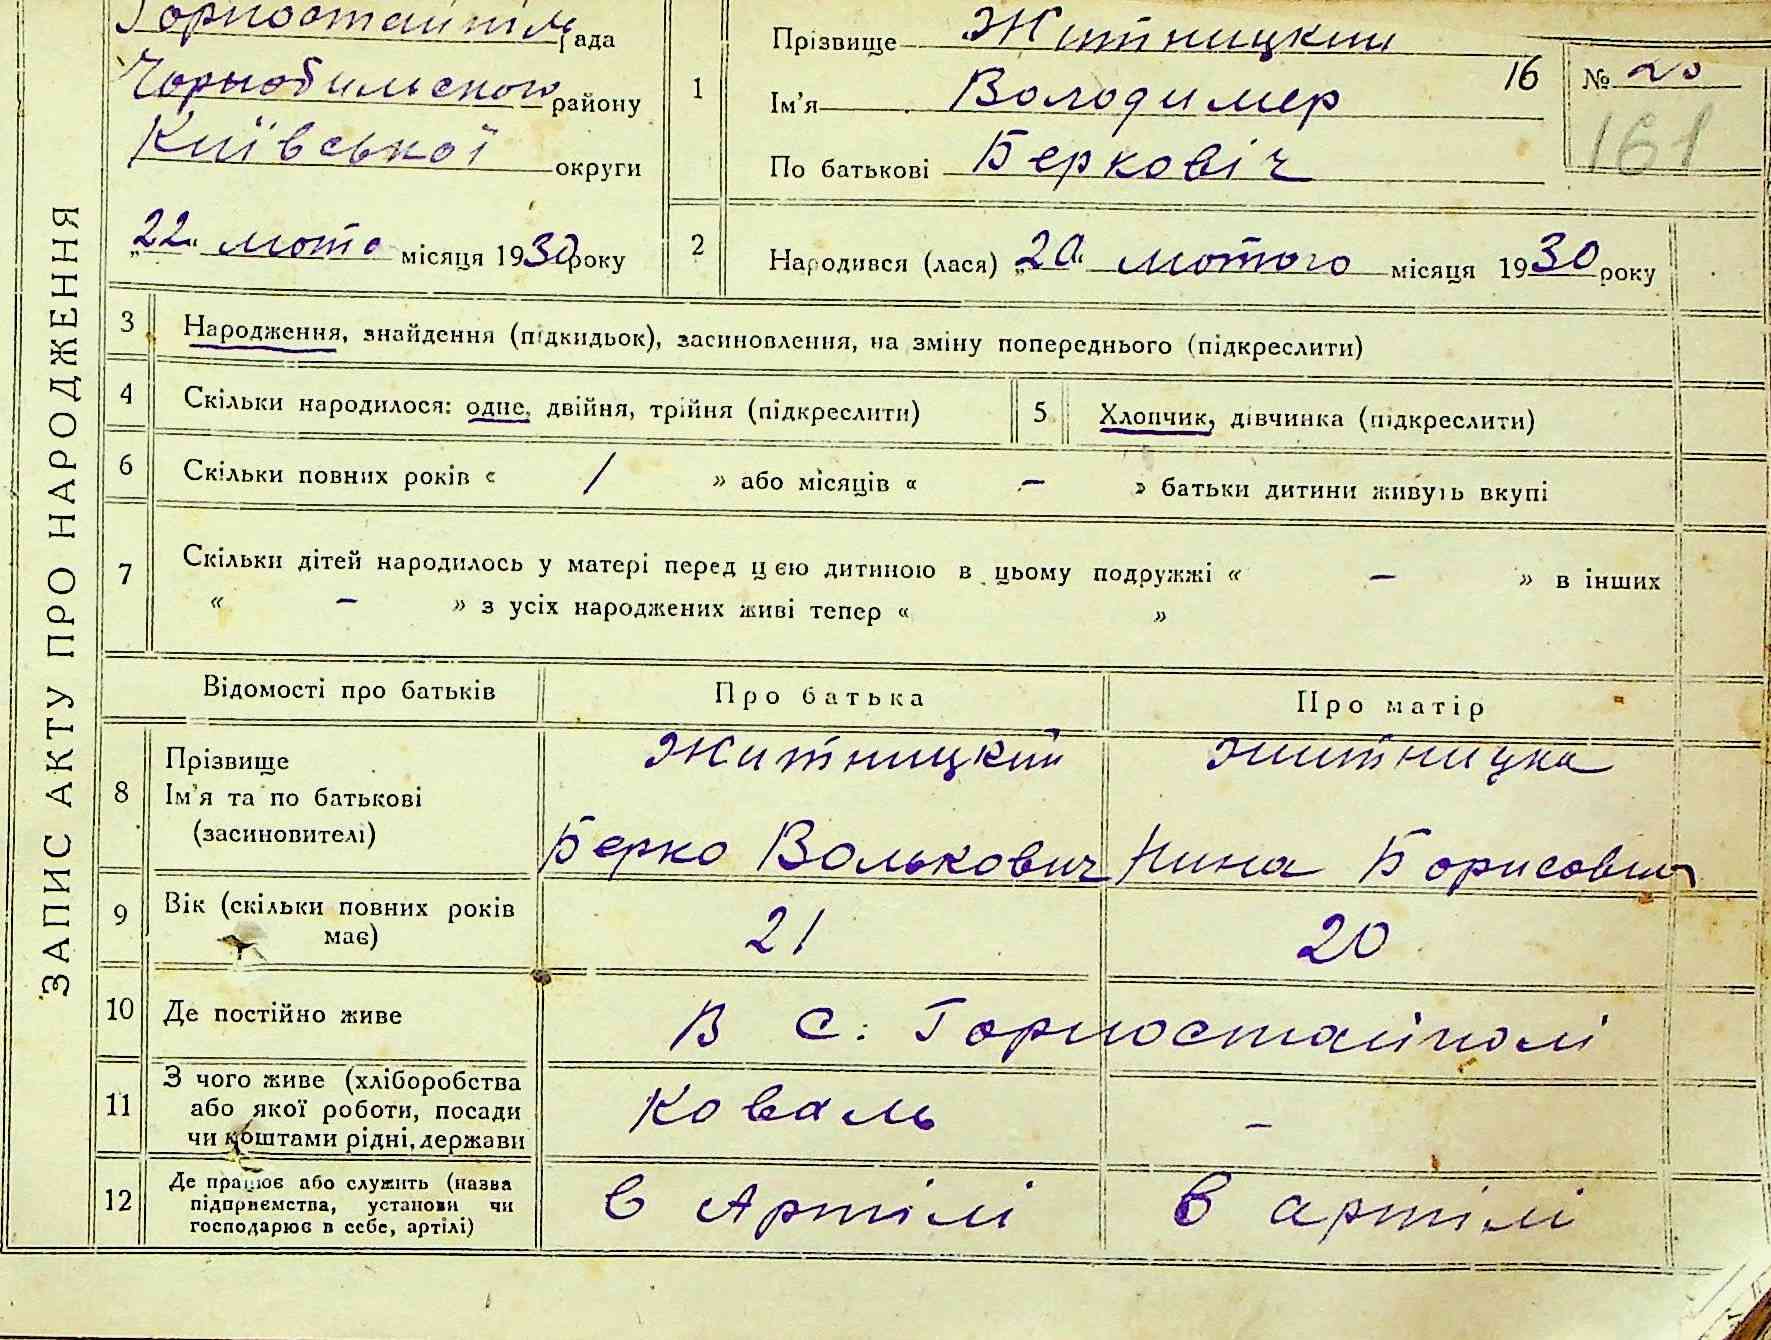 ЗАПИС АКТУ ПРО НАРОДЖЕННЯ
Горностайпіль рада
Чорнобильского району
Київської округи
„22" люто місяця 1930 року
1
Прізвище Житницкий
Ім'я Володимер
По батькові Берковіч
16
№ 20
161
2
Народився (лася) „20" лютого місяця 1930 року
3
Народження, знайдення (підкидьок), засиновлення, на зміну попереднього (підкреслити)
4
Скільки народилося: одне, двійня, трійня (підкреслити)
5
Хлопчик, дівчинка (підкреслити)
6
Скільки повних років « / » або місяців « – » батьки дитини живуть вкупі
7
Скільки дітей народилось у матері перед цією дитиною в цьому подружжі « – » в інших
« – » з усіх народжених живі тепер « »
Відомості про батьків
Про батька
Про матір
8
Прізвище
Ім'я та по батькові
(засиновителі)
Житницкий
Берко Волькович
Житницка
Нина Борисович
9
Вік (скільки повних років
має)
21
20
10
Де постійно живе
В с. Горностайполі
11
З чого живе (хліборобства
або якої роботи, посади
чи коштами рідні, держави
Коваль
–
12
Де працює або служить (назва
підприємства, установи чи
господарює в себе, артілі)
в Артілі
в артілі